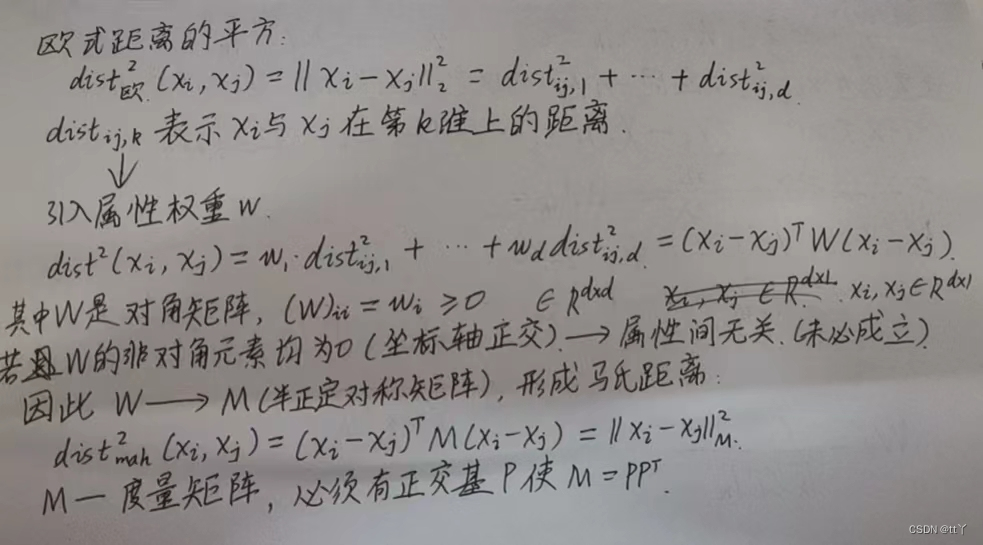 欧式距离的平方:
dist²欧(xi, xj) = ‖xi − xj‖₂² = dist²ij,1 + ⋯ + dist²ij,d
distij,k 表示 xi 与 xj 在第k维上的距离.
↓
引入属性权重w.
dist²(xi, xj) = w1·dist²ij,1 + ⋯ + wd dist²ij,d = (xi−xj)ᵀW(xi−xj).
其中W是对角矩阵, (W)ii = wi ≥ 0 ∈ R^{d×d} xi, xj ∈ R^{d×1} xi, xj ∈ R^{d×1}
若W的非对角元素均为0(坐标轴正交) → 属性间无关.(未必成立)
因此 W → M(半正定对称矩阵), 形成马氏距离:
dist²mah(xi, xj) = (xi−xj)ᵀM(xi−xj) = ‖xi−xj‖²M.
M — 度量矩阵, 必须有正交基P使 M = PPᵀ.
CSDN @tt丫